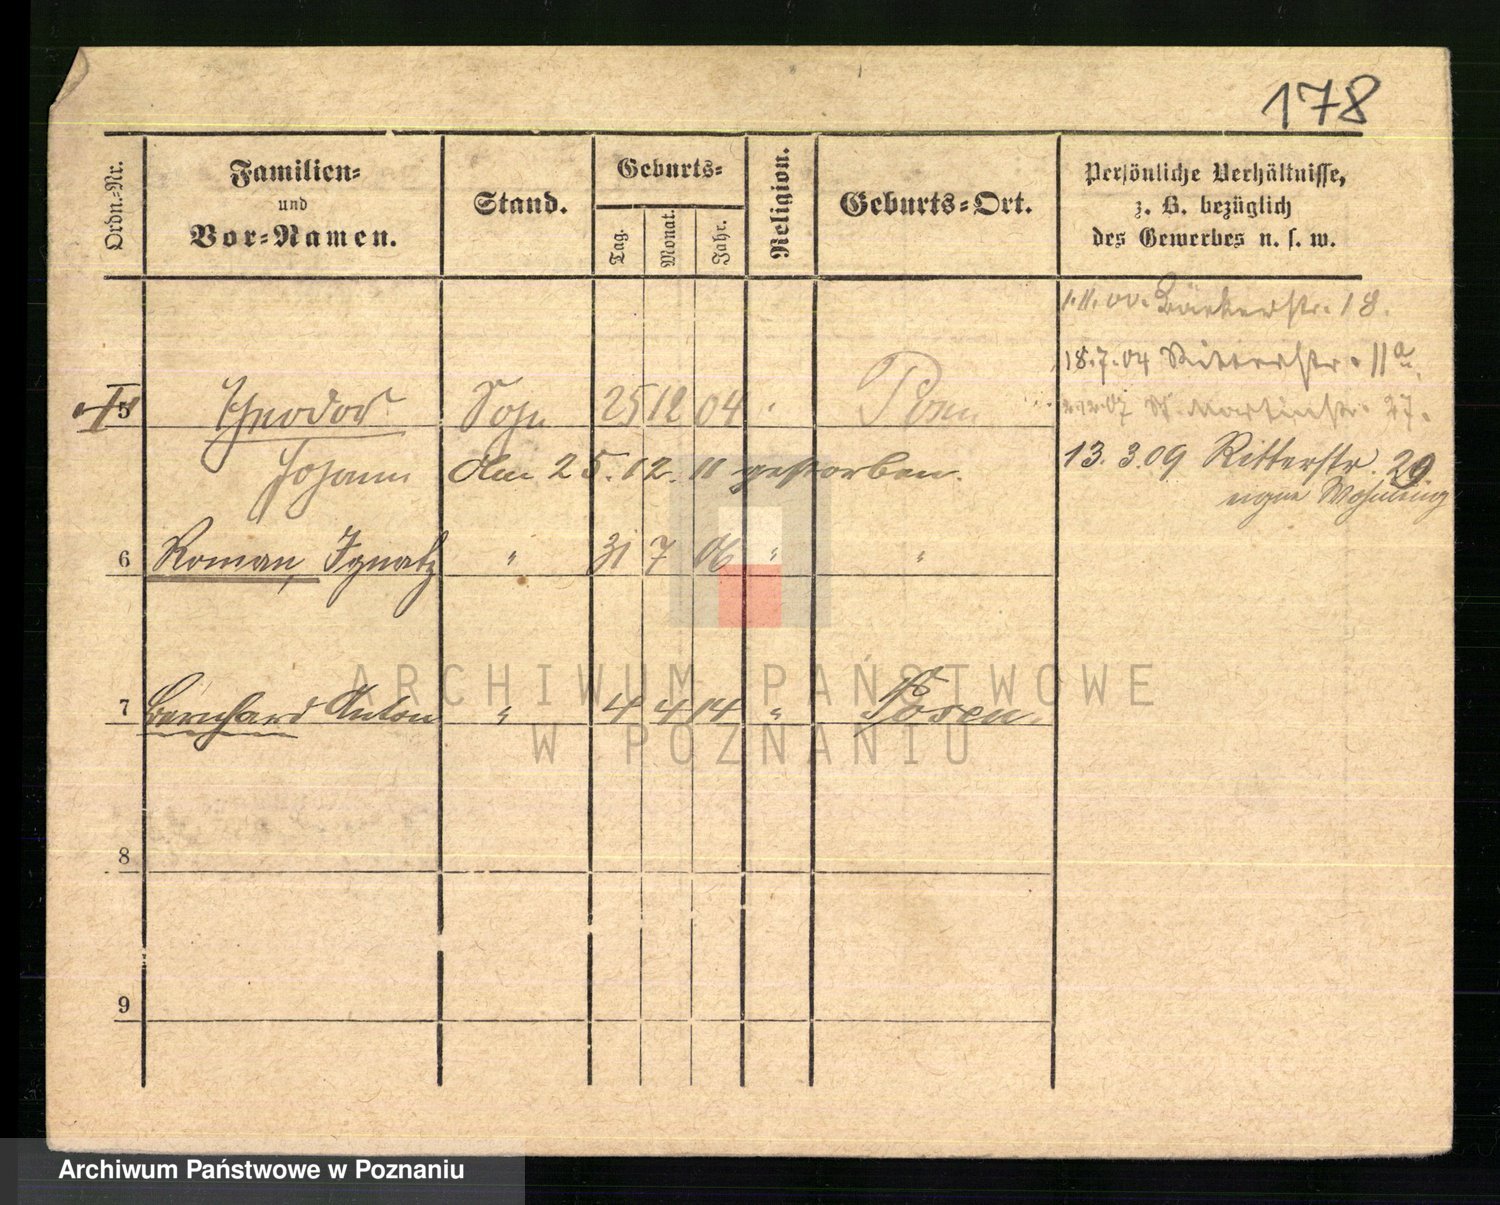 178
Ordn.-Nr.
Familien-
und
Vor-Namen.
Stand.
Geburts-
Tag.
Monat.
Jahr.
Religion.
Geburts-Ort.
Persönliche Verhältnisse,
z. B. bezüglich
des Gewerbes u. s. w.
1.11.00. Bäckerstr. 18.
18.7.04 Ritterstr. 11a
5 Theodor Sohn 25 12 04 Posen
2.12.07 St. Martinstr. 27.
Johann Am 25.12.11 gestorben.
13.3.09 Ritterstr. 29
Wohnung
6 Roman, Ignatz " 31 7 06 " "
7 Bernhard Anton " 4 4 14 " Posen.
8
9
ARCHIWUM PAŃSTWOWE
W POZNANIU
Archiwum Państwowe w Poznaniu